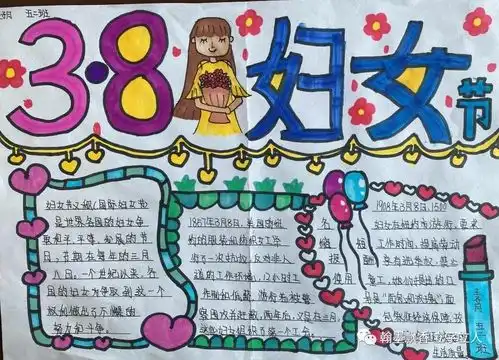 五二班
3·8妇女节
妇女节又叫(国际妇女节
是世界各国的妇女争
取和平、平等、发展的节
日,节期在每年的三月
八日。一个世纪以来,各
国的妇女为争取到这一个
权利做出了不懈的
努力和斗争。
1857年3月8日,美国
的服装和纺织女工举
行了一次抗议,反对非人
道的工作环境,12小时工
作制和低薪。游行者被警
察围攻并赶散,两年后,又是在三月
这些妇女组织了第一个工会
1908年3月8日,1500
名妇女在纽约市游行,要求
缩短工作时间,提高劳动
报酬
使用童工。她们提出的口
号是“面包和玫瑰”,面
包象征经济保障,玫
五二班